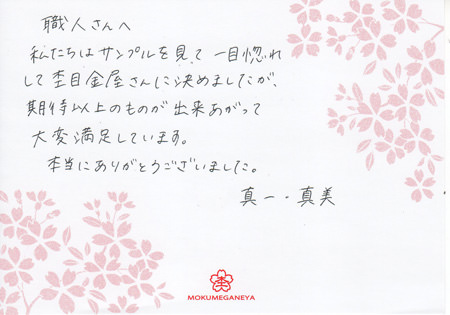 職人さんへ
私たちはサンプルを見て一目惚れ
して杢目金屋さんに決めましたが、
期待以上のものが出来あがって
大変満足しています。
本当にありがとうございました。
真一・真美
MOKUMEGANEYA